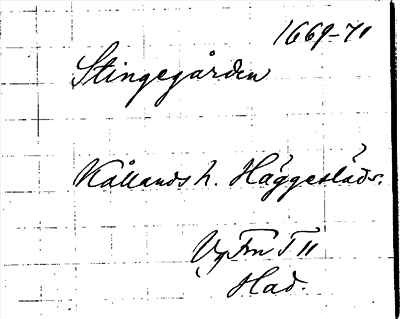 1669-71
Stingegården
Kållands h. Häggesleds s.
Vg Fru T 11
Had.